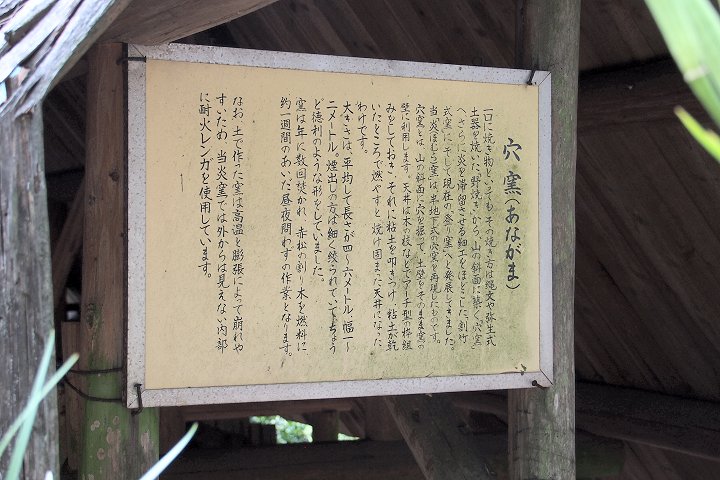 穴窯(あながま)
一口に焼き物といっても、その焼き方は縄文や弥生式
土器を焼いた「野焼き」から、山の斜面に築く「穴窯」
へ、さらに炎を滞留させる細工をほどこした「割竹
式窯」に、そして現在の「登り窯」へと発展してきました。
当炎ほむら窯は、半地下式の穴窯を再現したものです。
穴窯とは、山の斜面に穴を掘って、土壁をそのまま窯の
壁に利用します。天井は木の枝などでアーチ型の枠組
みをしておき、それに粘土を叩きつけ、粘土が乾
いたところで燃やすと焼け固まった天井になった
わけです。
大きさは、平均して長さが四〜六メートル、幅一〜
二メートル。煙出しの方は細く絞られていて、ちょう
ど徳利のような形をしていました。
窯は年に数回焚かれ、赤松の割り木を燃料に
約一週間のあいだ昼夜問わずの作業となります。
なお、土で作った窯は高温と膨張によって崩れや
すいため、当炎窯では外からは見えない内部
に耐火レンガを使用しています。